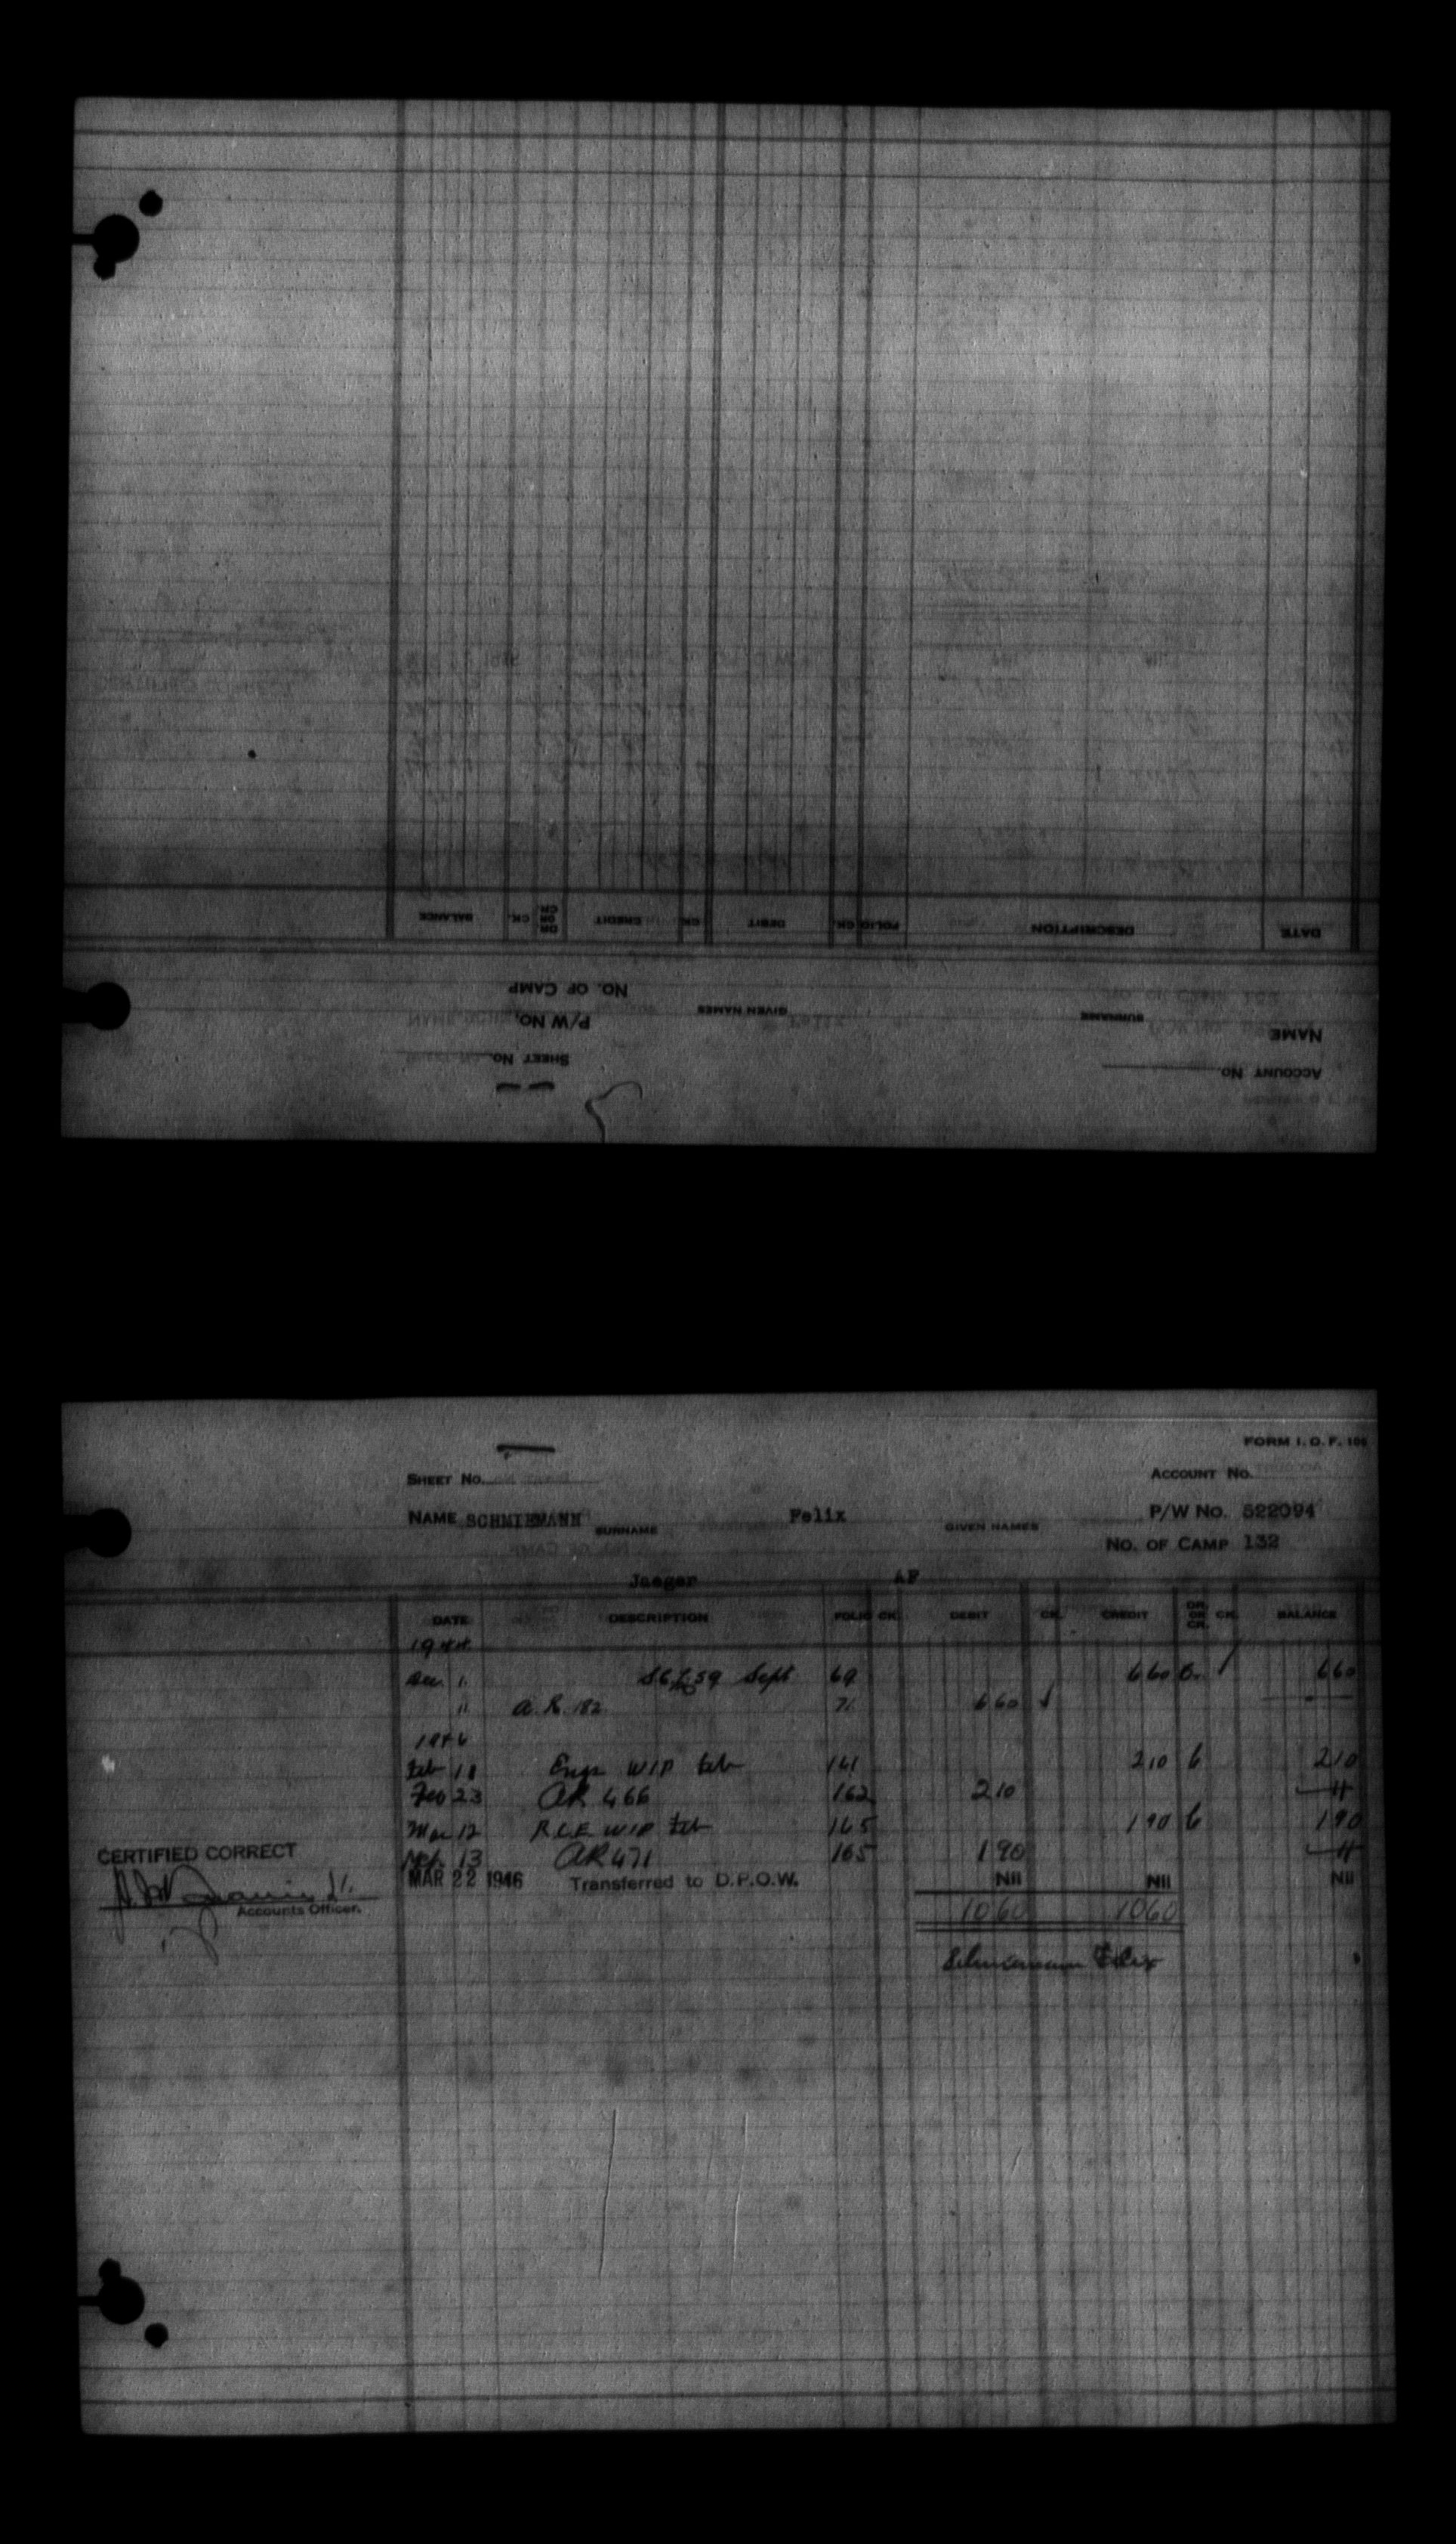 BALANCE CK. DR OR CR. CREDIT CK. DEBIT CK. FOLIO DESCRIPTION DATE
NO. OF CAMP
P/W NO. GIVEN NAMES SURNAME NAME
SHEET No. ACCOUNT No.
FORM I. O. F. 100
SHEET No. ACCOUNT No.
NAME SCHMIEMANN SURNAME Felix GIVEN NAMES P/W No. 522094
NO. OF CAMP 132
Jaeger AF
DATE DESCRIPTION FOLIO CK. DEBIT CK. CREDIT DR. OR CR. CK. BALANCE
1944
Dec 1. Sept 69 660 660
" A.R. 182 71 660 —
1946
Feb 18 Engr WIP Feb 161 210 210
Feb 23 AR 466 162 210
Mar 12 R.C.E. WIP Feb 165 190 190
13 AR 471 165 190
MAR 22 1946 Transferred to D.P.O.W. Nil Nil Nil
CERTIFIED CORRECT
Accounts Officer.
1060 1060
Schmiemann Felix